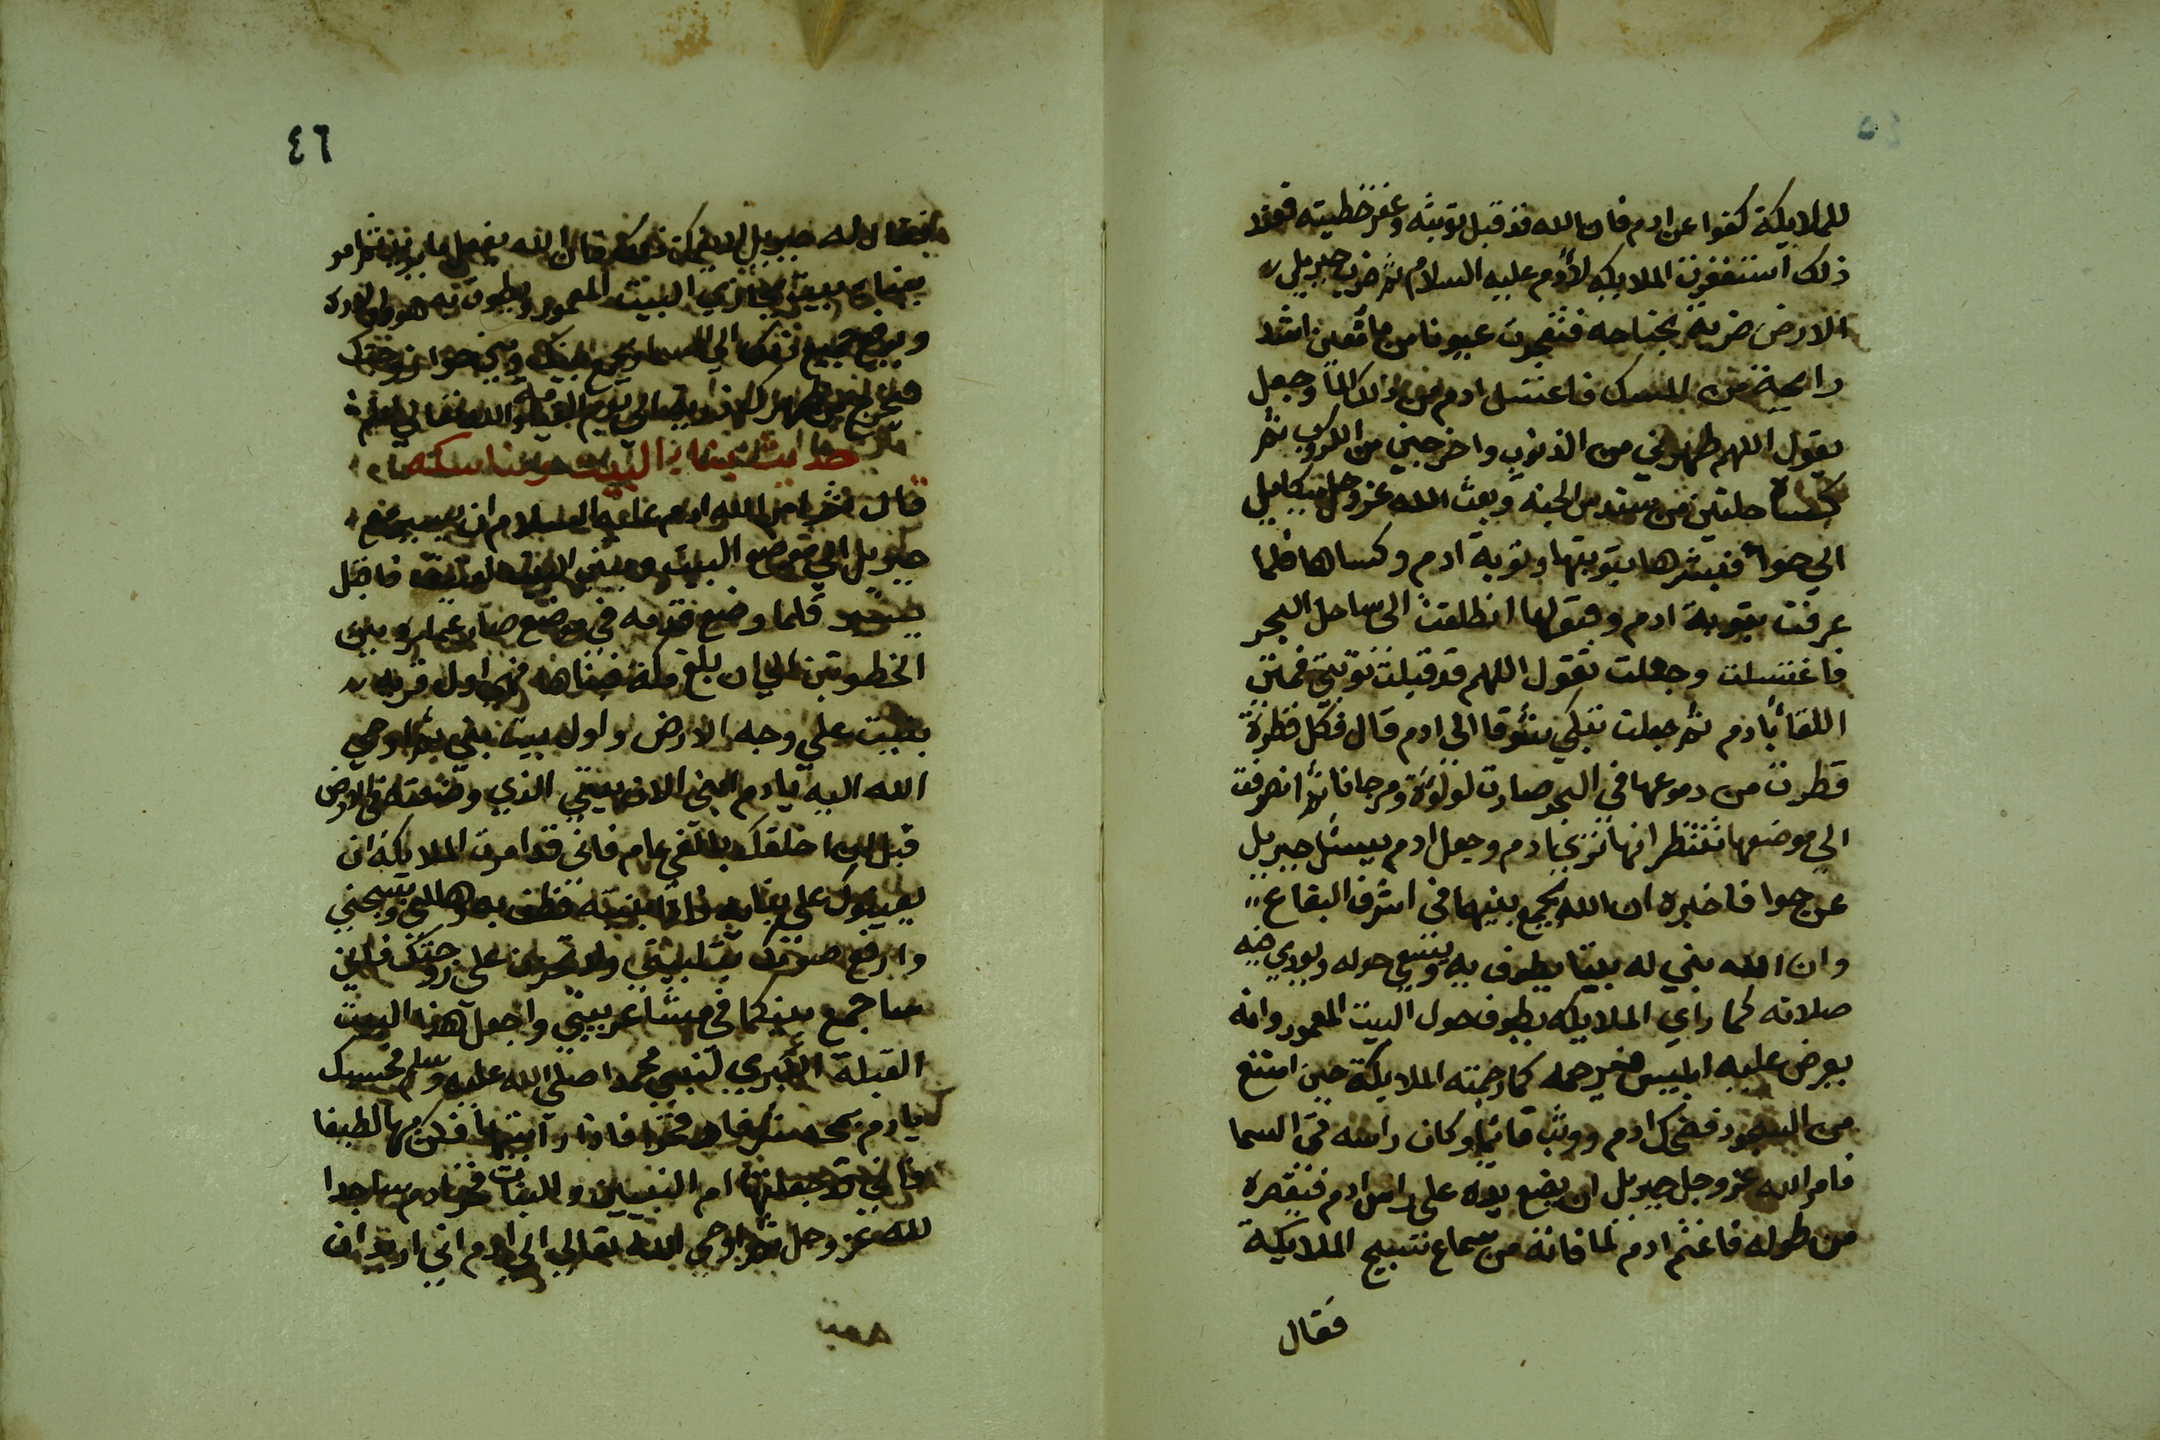 للملايكة كفوا عن ادم فان الله قد قبل توبته وغفر خطيته فعند
ذلك استغفرت الملايكه لأدم عليه السلام ثم ضرب جبريل
الارض ضربة بجناحه فتفجرت عيونا من ما معين اشد
رايحة من المسك فاغتسل ادم من ذلك الماء وجعل
يقول اللهم طهرني من الذنوب واخرجني من الكروب ثم
كساه حلتين من سندس الجنة وبعث الله عز وجل ميكاييل
الي حوا فبشرها بتوبتها وتوبة ادم وكساها فلما
عرفت بتوبة ادم وقبولها انطلقت الى ساحل البحر
فاغتسلت وجعلت تقول اللهم قد قبلت توبتي فمتى
اللقا بأدم ثم جعلت تبكي شوقا الى ادم قال فكل قطرة
قطرت من دموعها في البحر صارت لولوة ومرجانا ثم انصرفت
الي موضعها تنتظر انها تري بادم وجعل ادم يسئل جبريل
عن حوا فاخبره ان الله يجمع بينهما في اشرف البقاع
وان الله بني له بيتا يطوف به ويسعي حوله ويودي فيه
صلاته كما راي الملايكه يطوف حول البيت المعمور وانه
يعرض عليه ابليس فيرجمه كما رجمته الملايكة حين امتنع
من السجود فضحك ادم ووثب قائما وكان راسه في السما
فامر الله عز وجل جبريل ان يضع يده على راس ادم فيقصره
من طوله فاغتم ادم لما فاته من سماع تسبيح الملايكة
فقال
٤٦
فقال له جبريل لا يغمك ذلك فان الله يفعل ما يريد ثم امر
ببنا بيت يحاذي البيت المعمور ويطوف به هو واولاده
حديث بنا البيت ومناسكه
قال ثم امر الله ادم عليه السلام ان يسير مع
جبريل الي موضع البيت
فلما وضع قدمه في موضع صار عمارة وبين
الخطوتين الي ان بلغ مكة فبناها فهي اول قرية
بنيت علي وجه الارض واول بيت بني ثم اوحي
الله اليه يادم ابني الان بيتي الذي وضعته في الارض
قبل ان اخلقك بالفي عام فاني قد امرت الملايكة ان
يعينوك على بنايه فاذا بنيته فطف به وهللني وسبحني
وارفع صوتك ولا تحزن على زوجتك فاني
ساجمع بينكما في مشاعر بيتي واجعل هذا البيت
القبلة الكبري لنبي محمد صلى الله عليه وسلم فحسبك
يادم فاذا رأيتها فكن بها لطيفا
فاني قد جعلتها ام النبيين والبنات فخر ادم ساجدا
لله عز وجل ثم اوحي الله تعالى الي ادم اني اريد ان